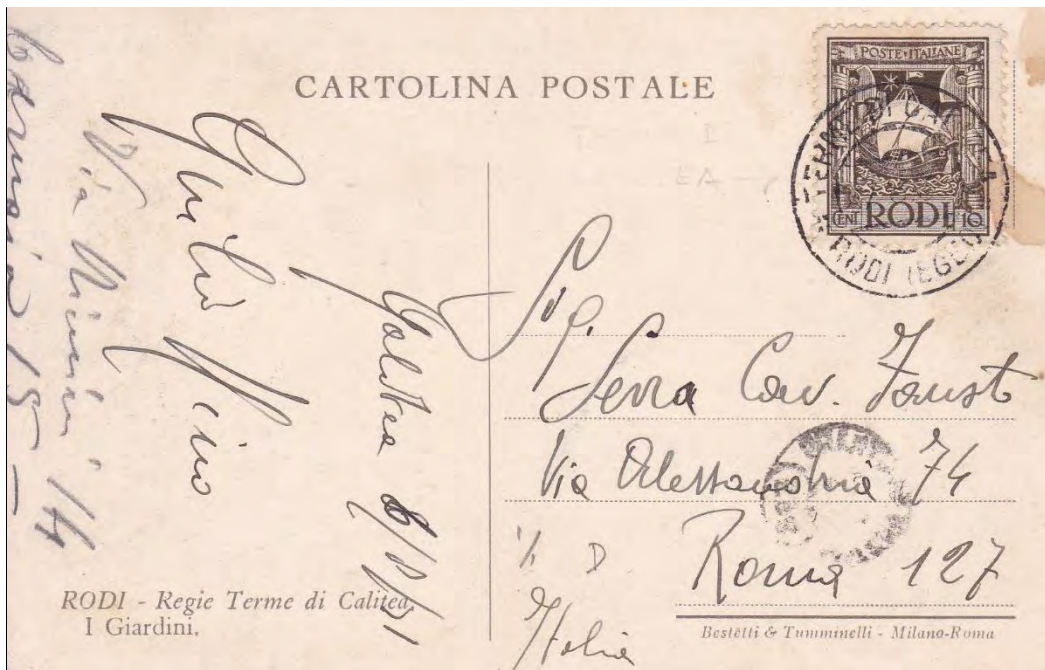 CARTOLINA POSTALE
POSTE·ITALIANE
CENT RODI 10
TERME DI CAL
RODI (EGEO)
Giulio Nino
Calitea 6/8/31
Via 14
Sig.
Serra Cav. Fausto
Via Alessandria 74
Roma 127
Italia
RODI - Regie Terme di Calitea.
I Giardini.
Bestetti & Tumminelli - Milano-Roma